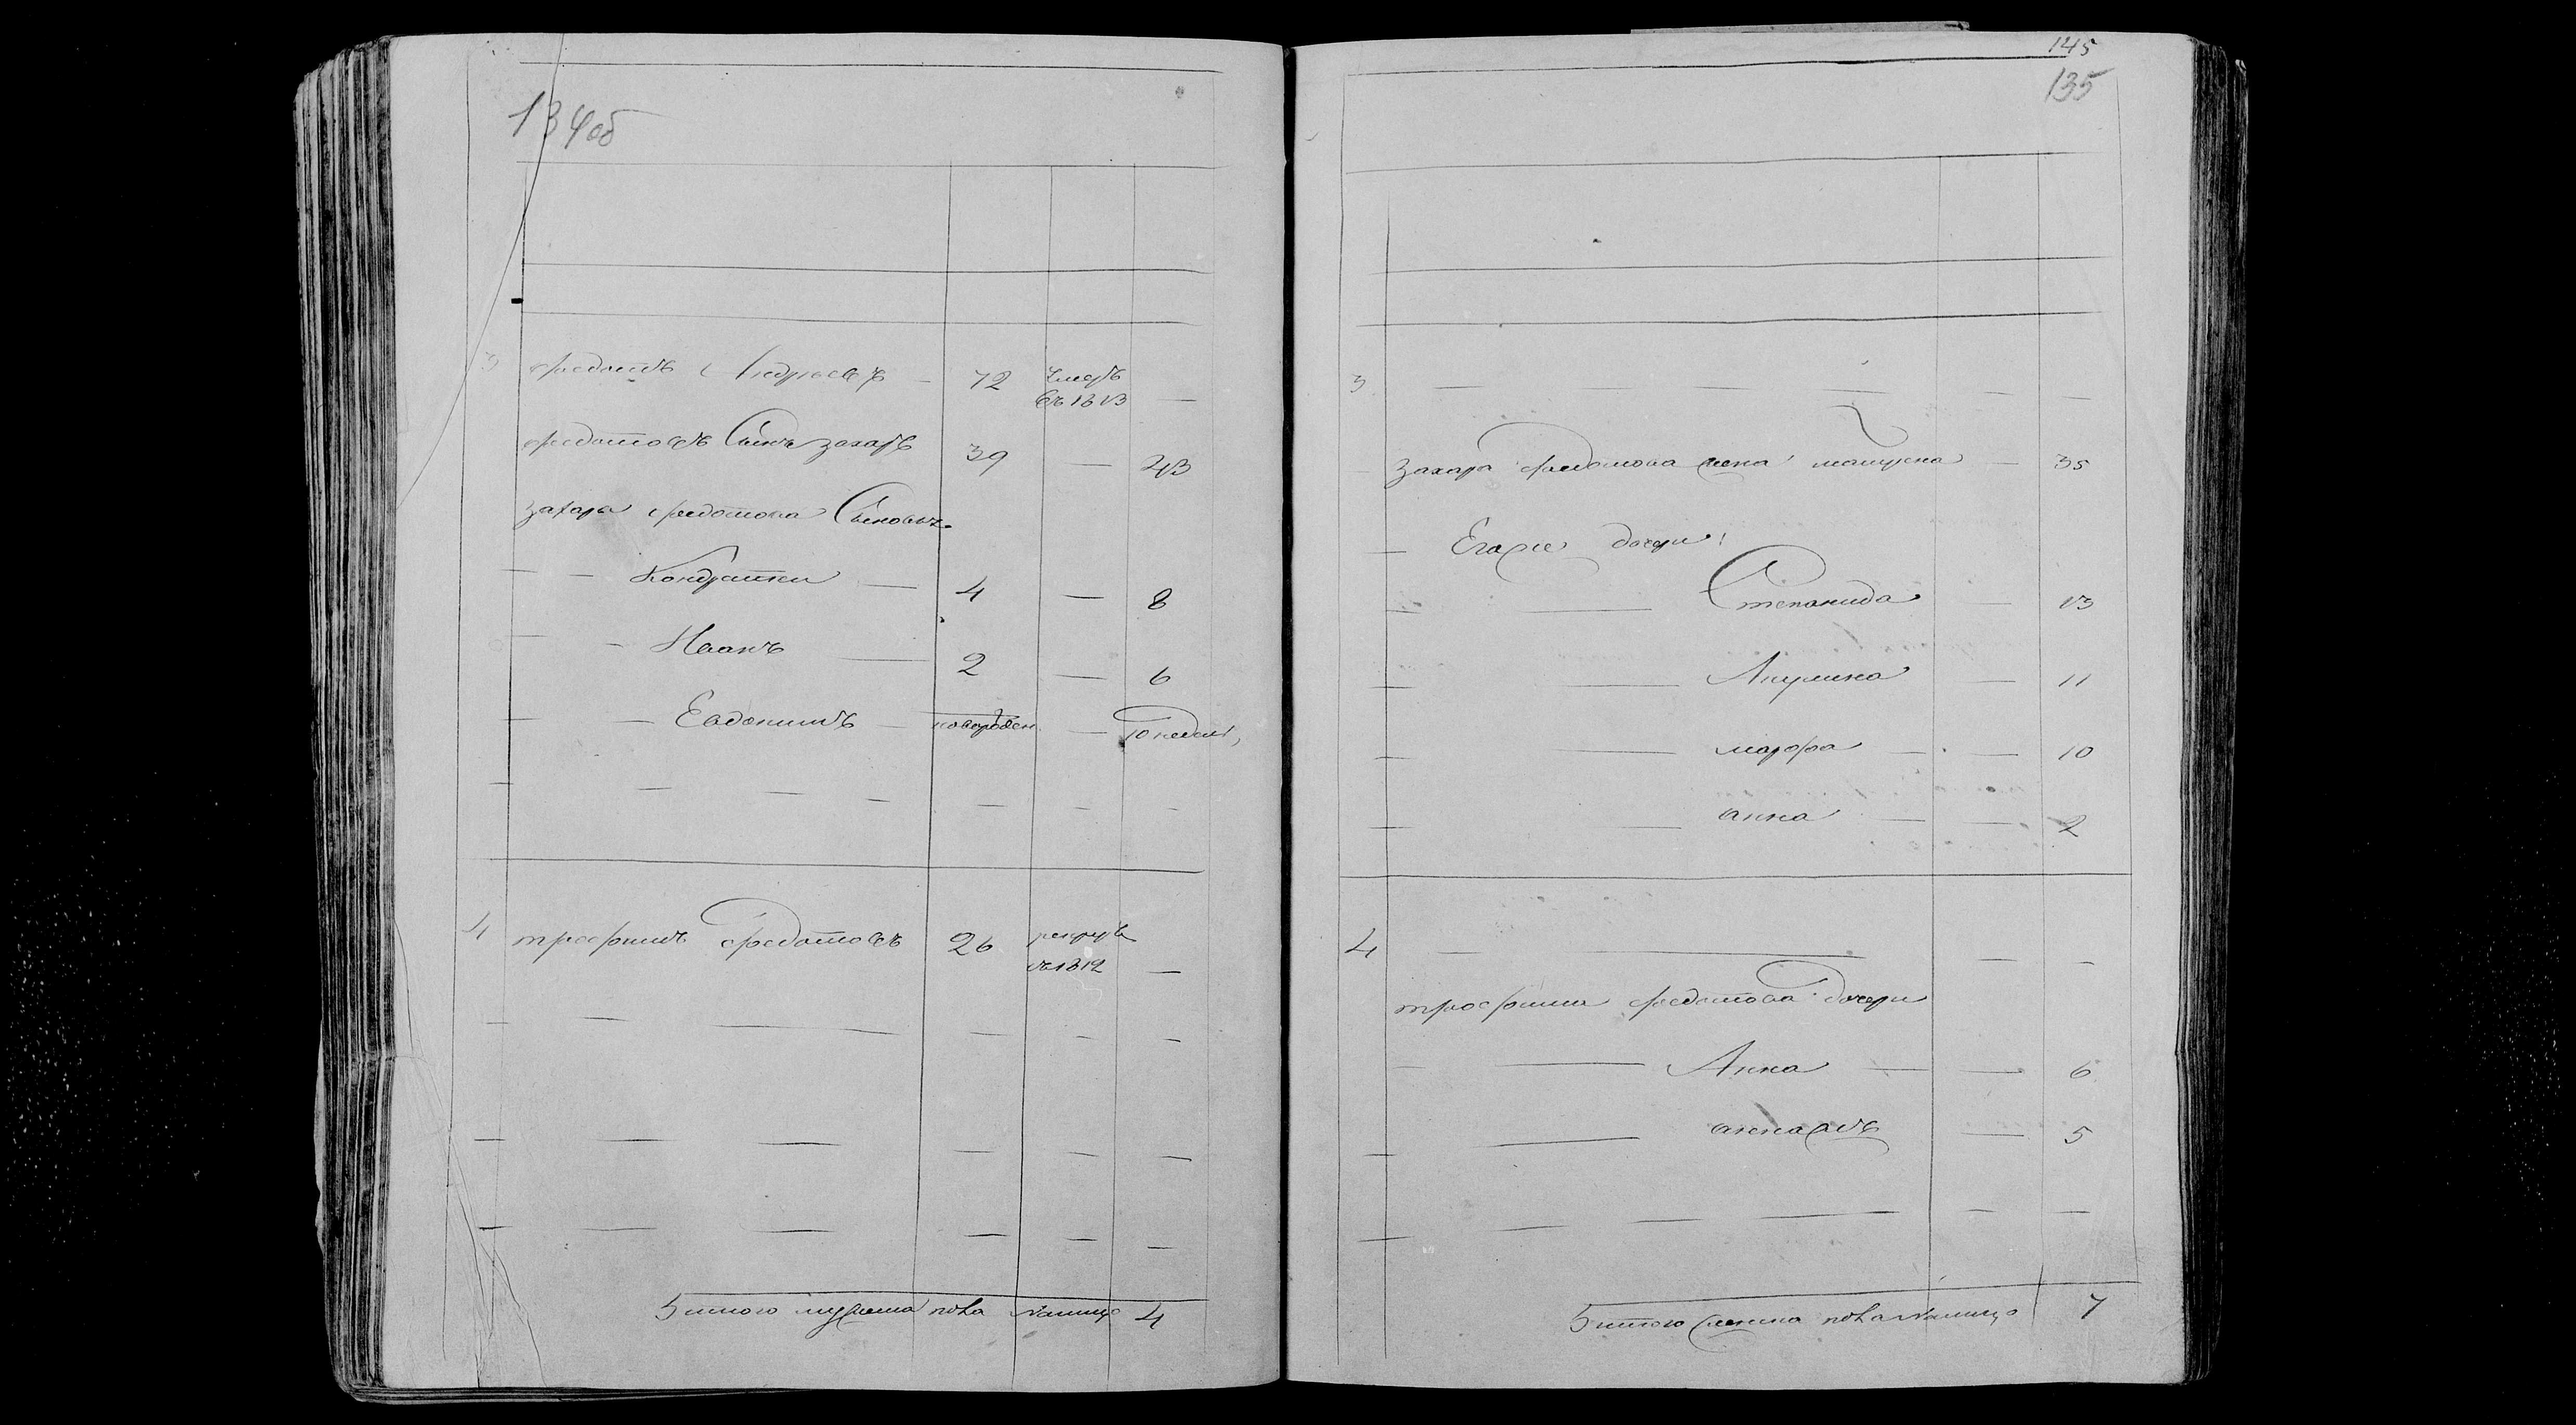 134 об
3 федотъ Андреевъ - 72 умеръ
въ 1813 —
федотовъ Сынъ захаръ 39 — 43
захара федотова Сыновья
— — Кондратеи — 4 — 8
— — Иванъ — 2 — 6
— — Евдокимъ — новорожден — 10 недель,
4 трофимъ федотовъ 26 рекрут
въ 1812 —
Итого мужеска пола налицо 4
145
135
3 — — — — — —
захара федотова жена матрена — 35
— Егоже дочери:
— — Степанида — 13
— — Акулина — 11
— — марфа — — 10
— — анна — — 2
4 — — — —
трофима федотова дочери
— — Анна — — 6
— — анна жъ — 5
Итого женска пола налицо 7